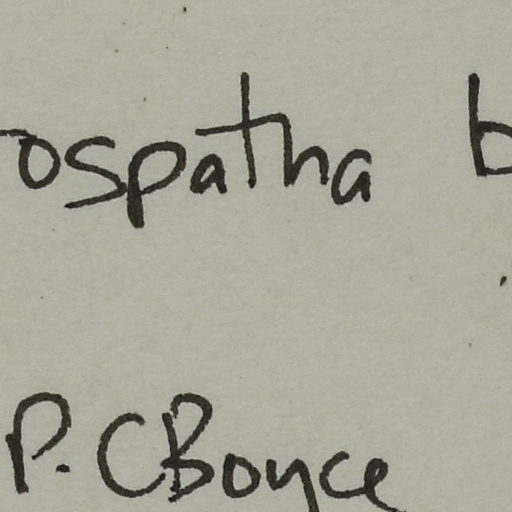 rospatha b
P. CBoyce